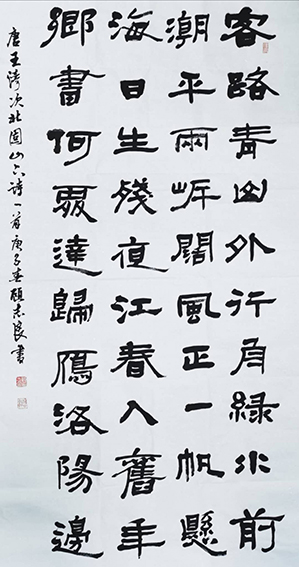 客路青山外行舟綠水前
潮平兩岸闊風正一帆懸
海日生殘夜江春入舊年
鄉書何處達歸鴈洛陽邊
唐王湾次北固山下诗一首庚子春顾志良書